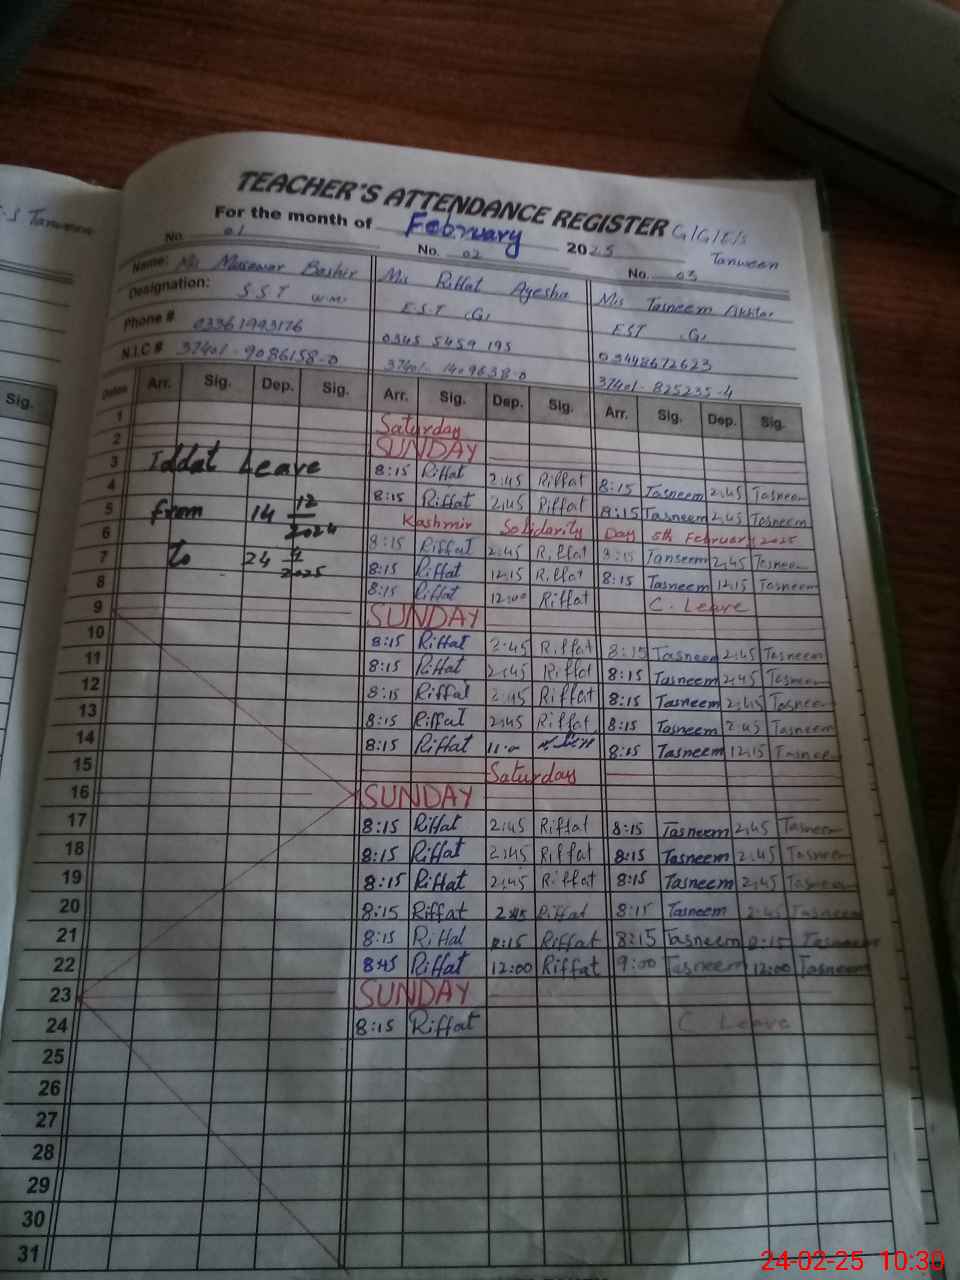 TEACHER'S ATTENDANCE REGISTER G/G/E/S
For the month of February 2025 Tanween
No. 01 No. 02 No. 03
Name: Mis Bashir Mis Riffat Ayesha Mis Tasneem Akhtar
Designation: S.S.T E.S.T (G) EST (G)
Phone # 03361993176 0345 5459 195 03448672623
N.I.C # 37401-9086158-0 37401-1409638-0 37401-825235-4
Dates Arr. Sig. Dep. Sig. Arr. Sig. Dep. Sig. Arr. Sig. Dep. Sig.
1 Saturday
2 SUNDAY
3 Iddat Leave 8:15 Riffat 2:45 Riffat 8:15 Tasneem 2:45 Tasneem
4 8:15 Riffat 2:45 Riffat 8:15 Tasneem 2:45 Tasneem
5 from 14 12/2024 Kashmir Solidarity Day 5th February 2025
6 8:15 Riffat 2:45 Riffat 8:15 Tanseem 2:45 Tasneem
7 To 24 4/2025 8:15 Riffat 12:15 Riffat 8:15 Tasneem 12:15 Tasneem
8 8:15 Riffat 12:00 Riffat C. Leave
9 SUNDAY
10 8:15 Riffat 2:45 Riffat 8:15 Tasneem 2:45 Tasneem
11 8:15 Riffat 2:45 Riffat 8:15 Tasneem 2:45 Tasneem
12 8:15 Riffat 2:45 Riffat 8:15 Tasneem 2:45 Tasneem
13 8:15 Riffat 2:45 Riffat 8:15 Tasneem 2:45 Tasneem
14 8:15 Riffat 11:00 8:15 Tasneem 12:15 Tasneem
15 Saturday
16 SUNDAY
17 8:15 Riffat 2:45 Riffat 8:15 Tasneem 2:45 Tasneem
18 8:15 Riffat 2:45 Riffat 8:15 Tasneem 2:45 Tasneem
19 8:15 Riffat 2:45 Riffat 8:15 Tasneem 2:45 Tasneem
20 8:15 Riffat 2:45 Riffat 8:15 Tasneem 2:45 Tasneem
21 8:15 Riffat 12:15 Riffat 8:15 Tasneem 12:15 Tasneem
22 8:45 Riffat 12:00 Riffat 9:00 Tasneem 12:00 Tasneem
23 SUNDAY
24 8:15 Riffat C Leave
25
26
27
28
29
30
31
Tanween
Sig.
24-02-25 10:30